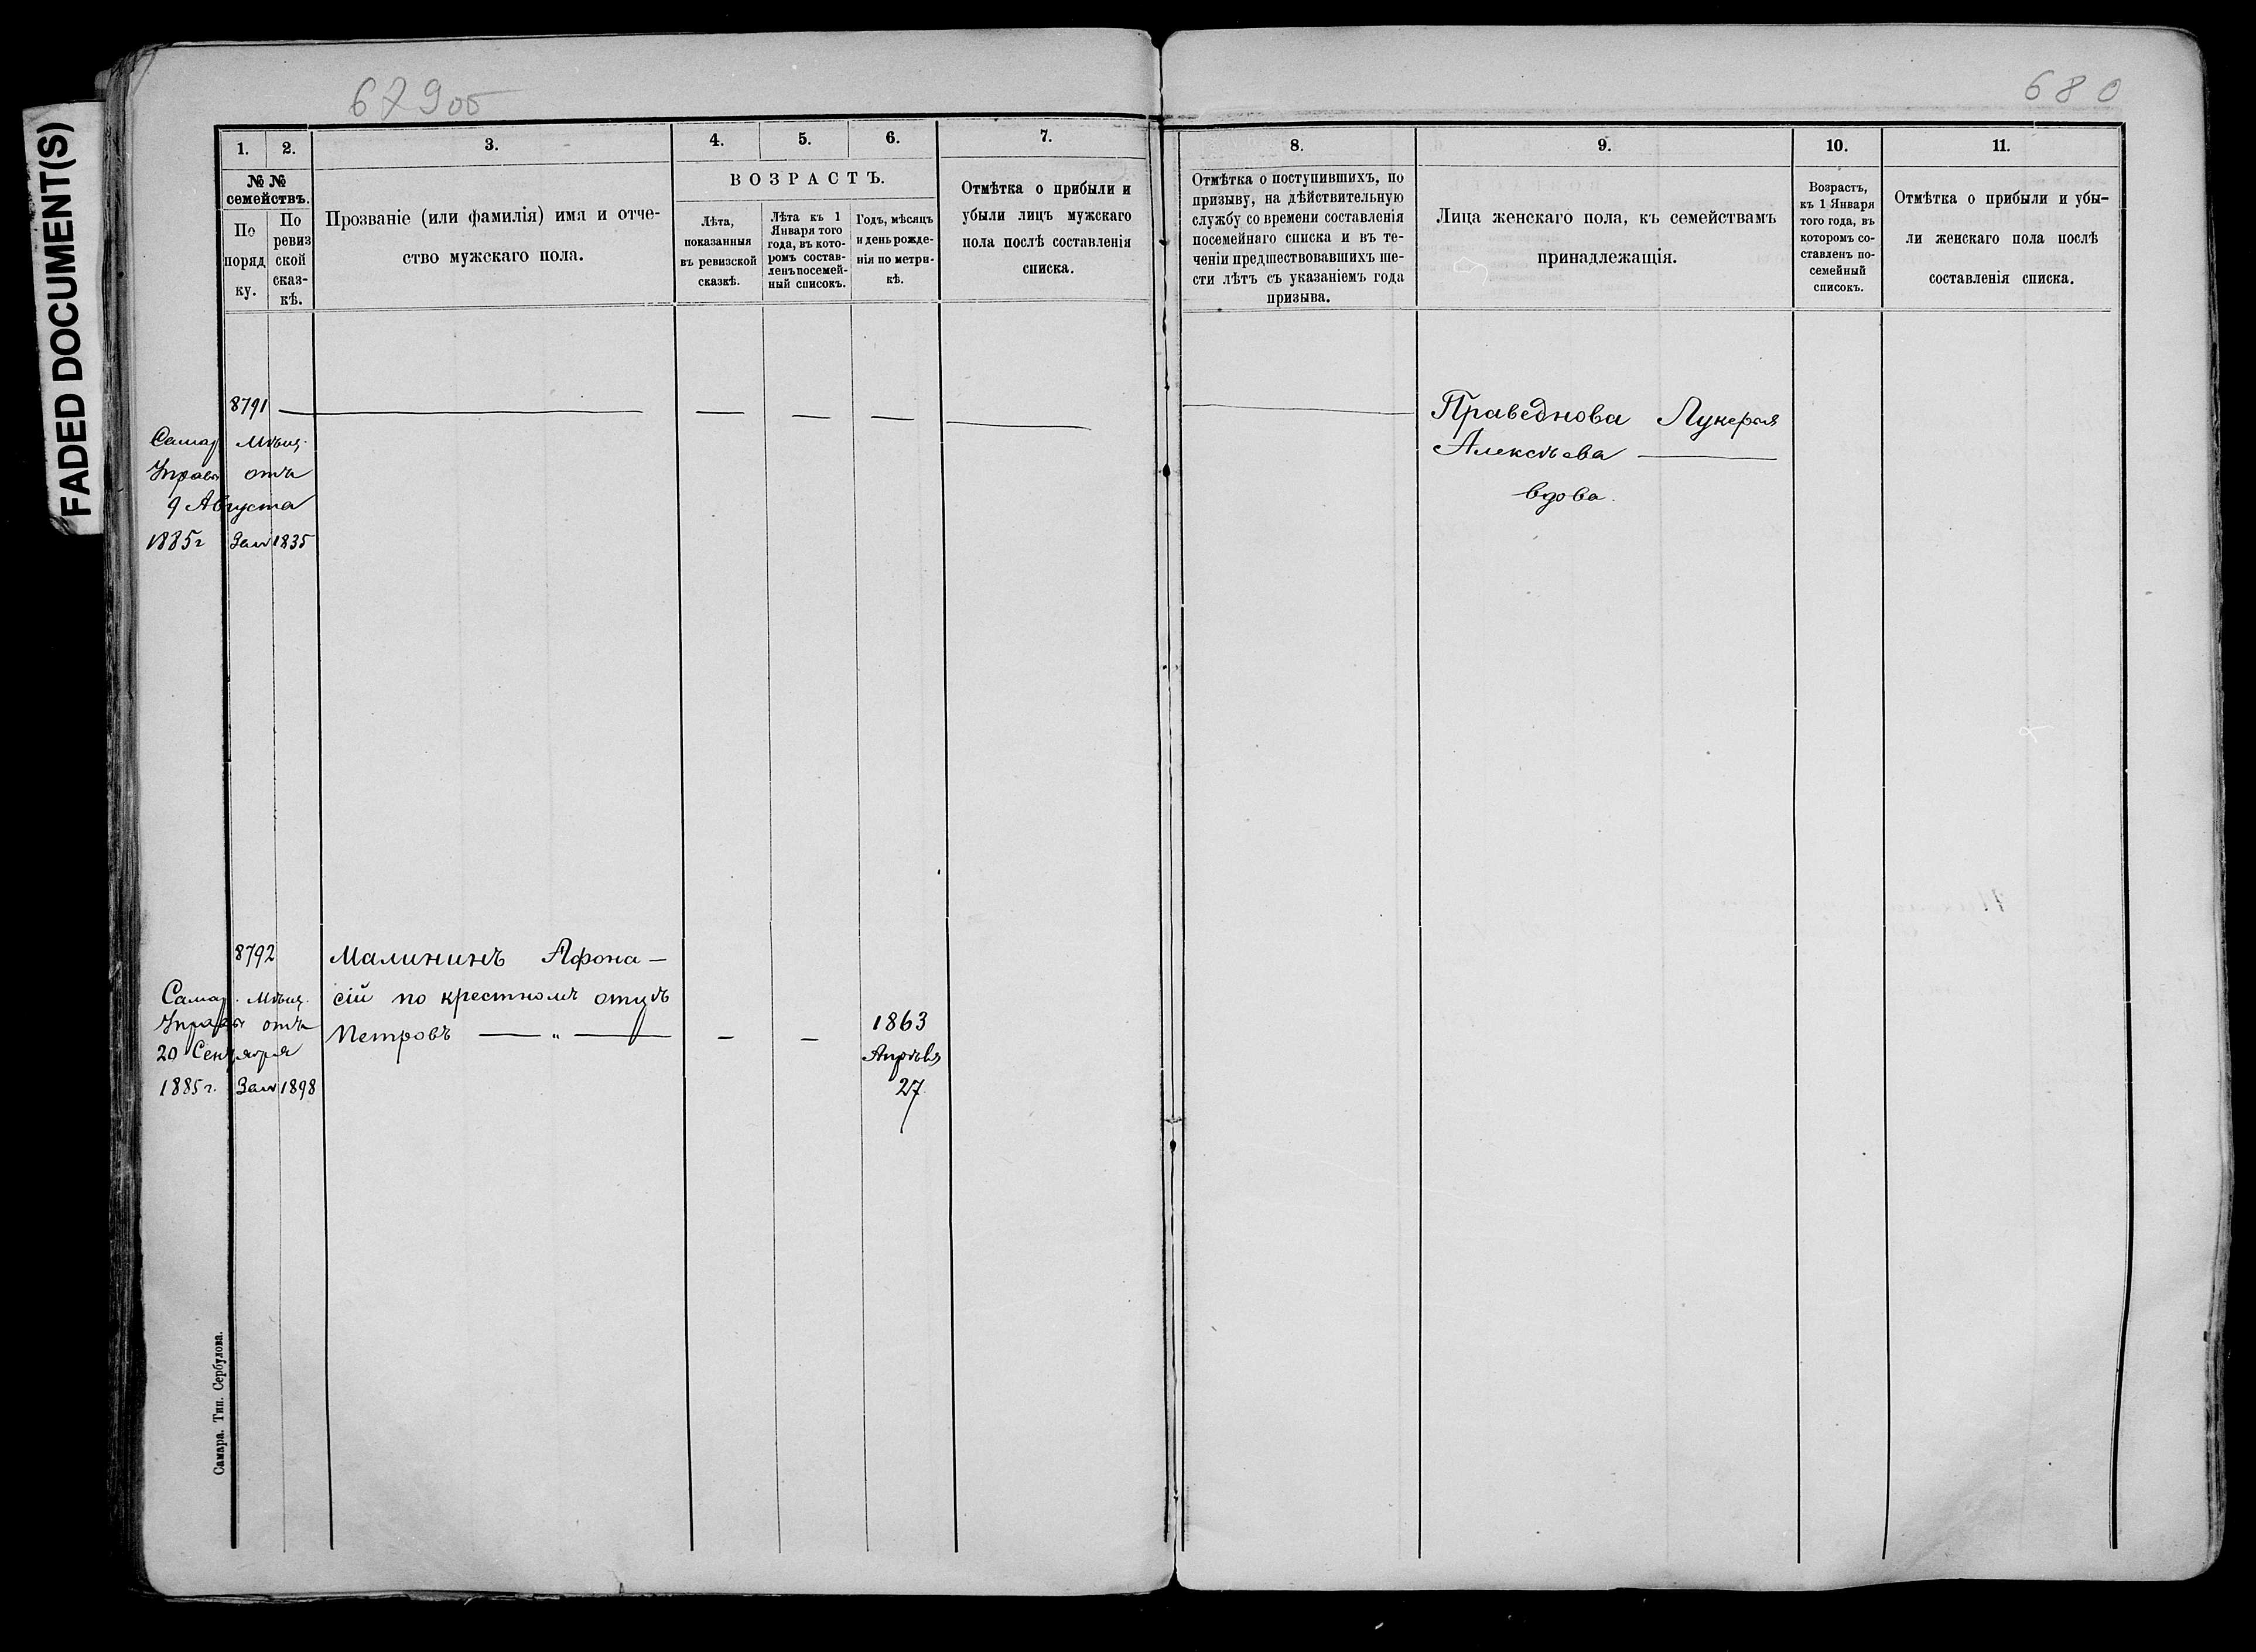 FADED DOCUMENT(S)
679об
680
1.
2.
3.
4.
5.
6.
7.
№ №
семействъ.
По
поряд
ку.
По
ревиз
ской
сказ-
кѣ.
Прозваніе (или фамилія) имя и отче-
ство мужскаго пола.
ВОЗРАСТЪ.
Лѣта,
показанныя
въ ревизской
сказкѣ.
Лѣта къ 1
Января того
года, въ кото-
ромъ состав-
ленъ посемей-
ный списокъ.
Годъ, мѣсяцъ
и день рожде-
нія по метри-
кѣ.
Отмѣтка о прибыли и
убыли лицъ мужскаго
пола послѣ составленія
списка.
8.
9.
10.
11.
Отмѣтка о поступившихъ, по
призыву, на дѣйствительную
службу со времени составленія
посемейнаго списка и въ те-
ченіи предшествовавшихъ ше-
сти лѣтъ съ указаніемъ года
призыва.
Лица женскаго пола, къ семействамъ
принадлежащія.
Возрастъ,
къ 1 Января
того года, въ
которомъ со-
ставленъ по-
семейный
списокъ.
Отмѣтка о прибыли и убы-
ли женскаго пола послѣ
составленія списка.
8791
Самар. Мѣщ.
Управы отъ
9 Августа
1885г За № 1835
Праведнова Лукерья
Алексѣева
вдова.
8792
Самар. Мѣщ.
Управы отъ
20 Сентября
1885г. За № 1898
Малининъ Афона-
сій по крестномъ отцѣ
Петровъ — „ —
1863
Апрѣля
27
Самара. Тип. Сербулова.